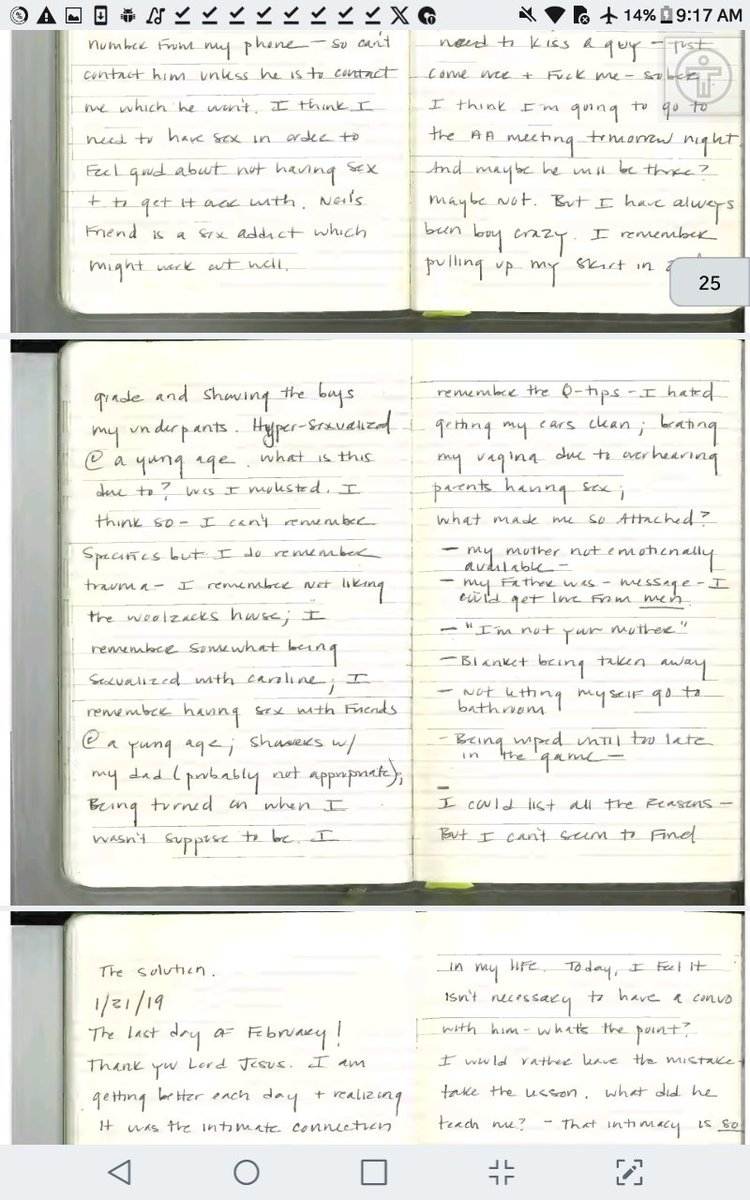 14% 9:17 AM
number from my phone - so can't
contact him unless he is to contact
me which he won't. I think I
need to have sex in order to
Feel good about not having sex
+ to get it over with. Neil's
Friend is a sex addict which
might work out well.
need to kiss a guy - just
come over + Fuck me - sober
I think I'm going to go to
the AA meeting tomorrow night.
And maybe he will be there?
maybe not. But I have always
been boy crazy. I remember
pulling up my skirt in
25
grade and showing the boys
my underpants. Hyper-sexualized
@ a young age. what is this
due to? was I molested. I
think so - I can't remember
specifics but I do remember
trauma - I remember not liking
the woolzacks house; I
remember somewhat being
sexualized with caroline; I
remember having sex with Friends
@ a young age; showers w/
my dad (probably not appropriate);
Being turned on when I
wasn't suppose to be. I
remember the Q-tips - I hated
getting my ears clean; beating
my vagina due to overhearing
parents having sex;
what made me so Attached?
- my mother not emotionally
available -
- my Father was - message - I
could get love From men
- "I'm not your mother"
- Blanket being taken away
- Not letting myself go to
bathroom
- Being wiped until too late
in the game -
-
I could list all the reasons -
But I can't seem to Find
The solution.
1/31/19
The last day of February!
Thank you Lord Jesus. I am
getting better each day + realizing
It was the intimate connection
in my life. Today, I Feel It
isn't necessary to have a convo
with him - what's the point?
I would rather leave the mistake +
take the lesson. what did he
teach me? - That intimacy is so